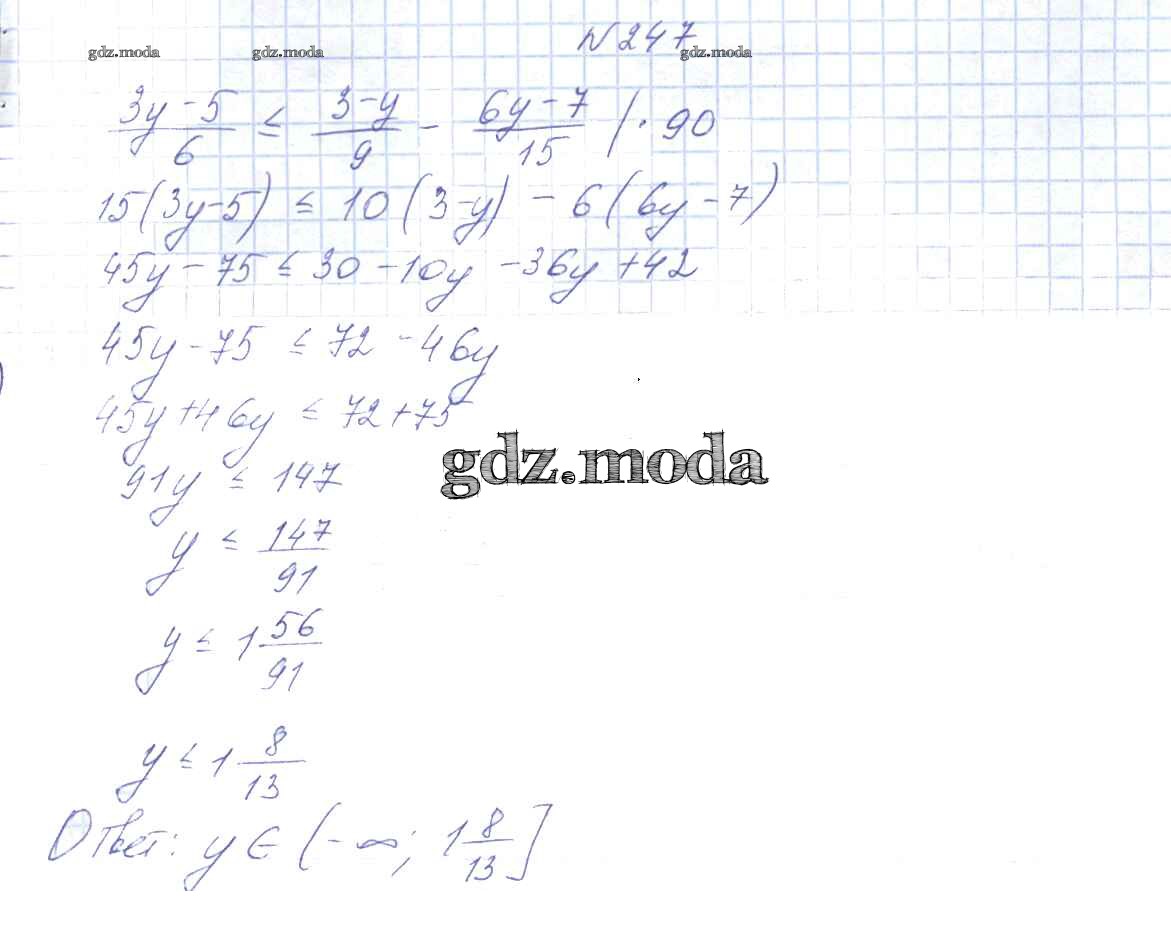 №247
gdz.moda gdz.moda gdz.moda
(3y-5)/6 ≤ (3-y)/9 - (6y-7)/15 |·90
15(3y-5) ≤ 10(3-y) - 6(6y-7)
45y-75 ≤ 30-10y-36y+42
45y-75 ≤ 72-46y
45y+46y ≤ 72+75
gdz.moda
91y ≤ 147
y ≤ 147/91
y ≤ 1 56/91
y ≤ 1 8/13
Ответ: y ∈ (-∞; 1 8/13]